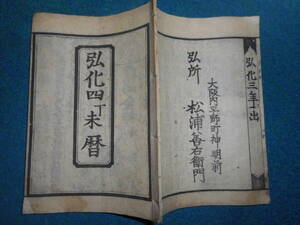 弘化三年出
弘所
大阪内平野町神明前
松浦善右衛門
弘化四丁未暦